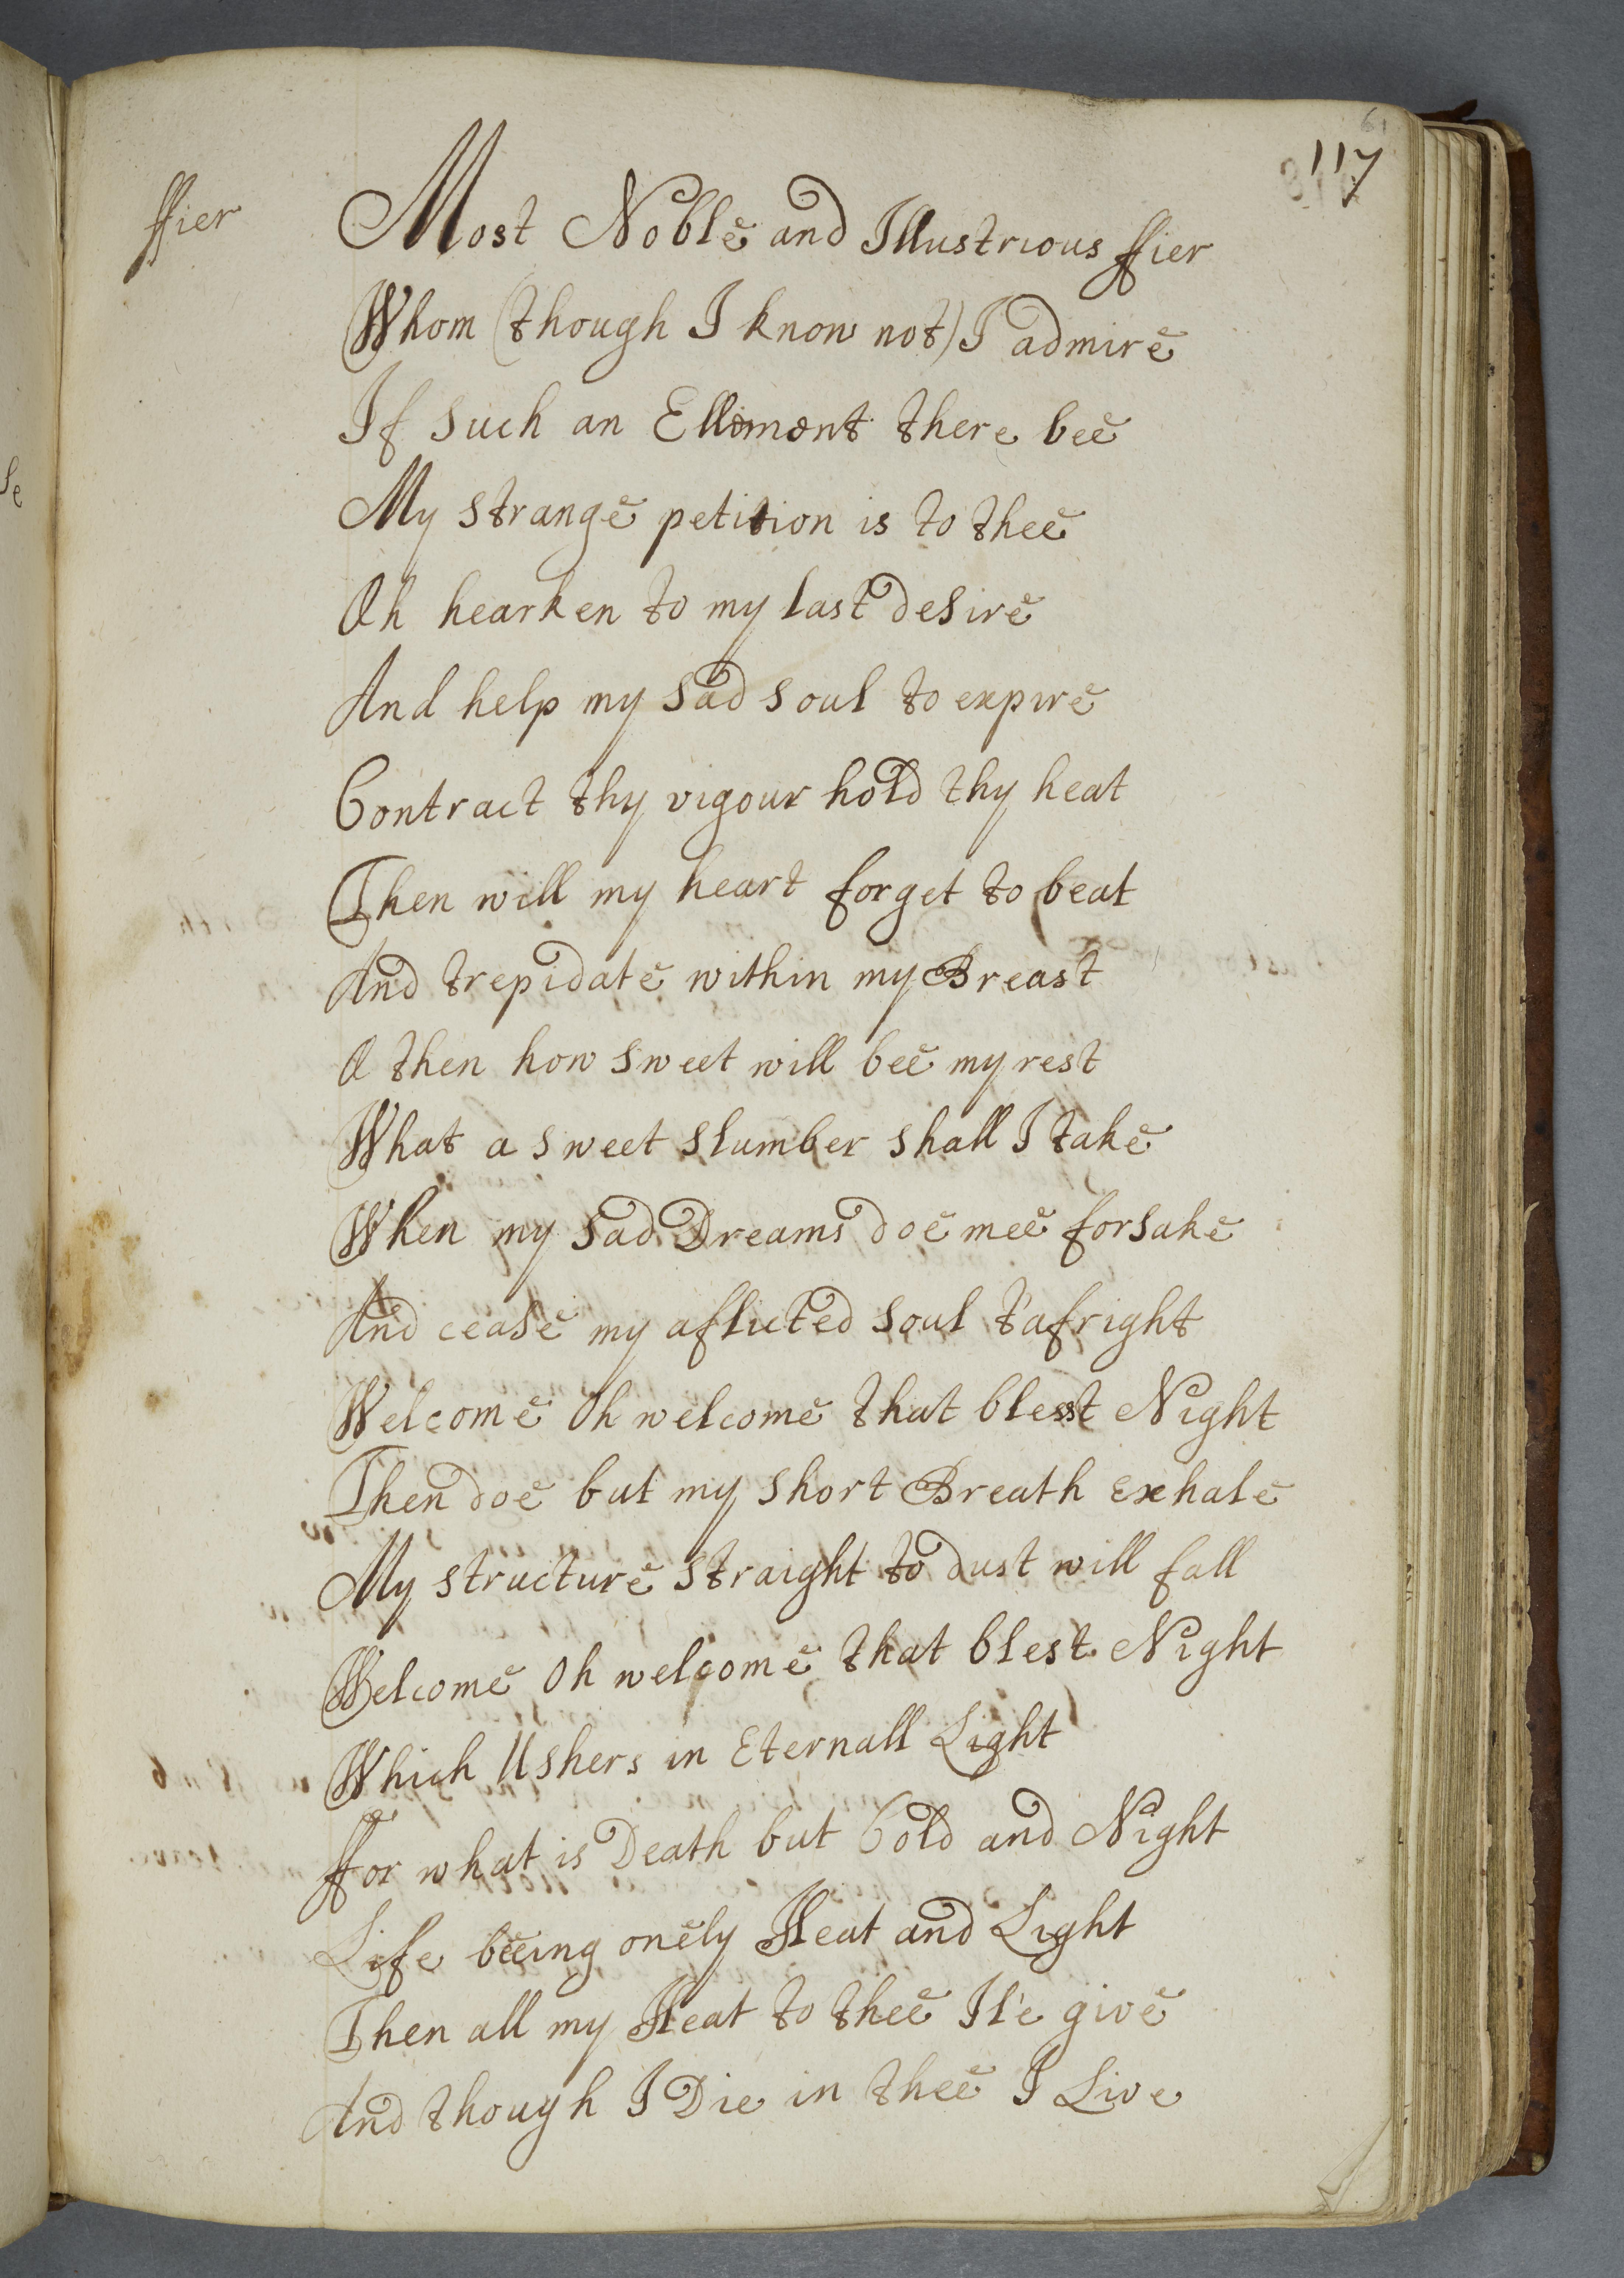 61
117
ffier
Most Noble and Illustrious ffier
Whom (though I know not) I admire
If such an Ellement there bee
My strange petition is to thee
Oh hearken to my last desire
And help my sad soul to expire
Contract thy vigour hold thy heat
Then will my heart forget to beat
And trepidate within my Breast
O then how sweet will bee my rest
What a sweet slumber shall I take
When my sad Dreams doe mee forsake
And cease my aflicted soul t'afright
Welcome Oh welcome that blesst Night
Then doe but my short Breath exhale
My structure straight to dust will fall
Welcome Oh welcome that blest Night
Which Ushers in Eternall Light
ffor what is Death but Cold and Night
Life beeing onely Heat and Light
Then all my Heat to thee Il'e give
And though I Die in thee I Live